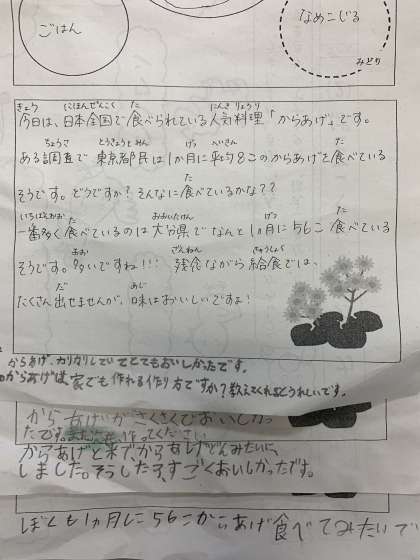 ごはん
なめこじる
みどり
きょう にほんぜんこく た にんき りょうり
今日は、日本全国で食べられている人気料理「からあげ」です。
ちょうさ とうきょうとみん げつ へいきん た
ある調査で東京都民は1か月に平均8このからあげを食べている
そうです。どうですか？そんなに食べているかな？？
いちばんおお た おおいたけん げつ た
一番多く食べているのは大分県でなんと1か月に56こ食べている
おお ざんねん きゅうしょく
そうです。多いですね!!! 残念ながら給食では、
だ あじ
たくさん出せませんが、味はおいしいですよ！
からあげ、カリカリしていてとてもおいしかったです。
からあげは、家でも作れる作り方ですか？教えてくれるとうれしいです。
からあげがさくさくでおいしかっ
たです。また作ってください
からあげと米で、からあげどんみたいに、
しました。そうしたら、すごくおいしかったです。
ぼくも1か月に56こからあげ食べてみたいで